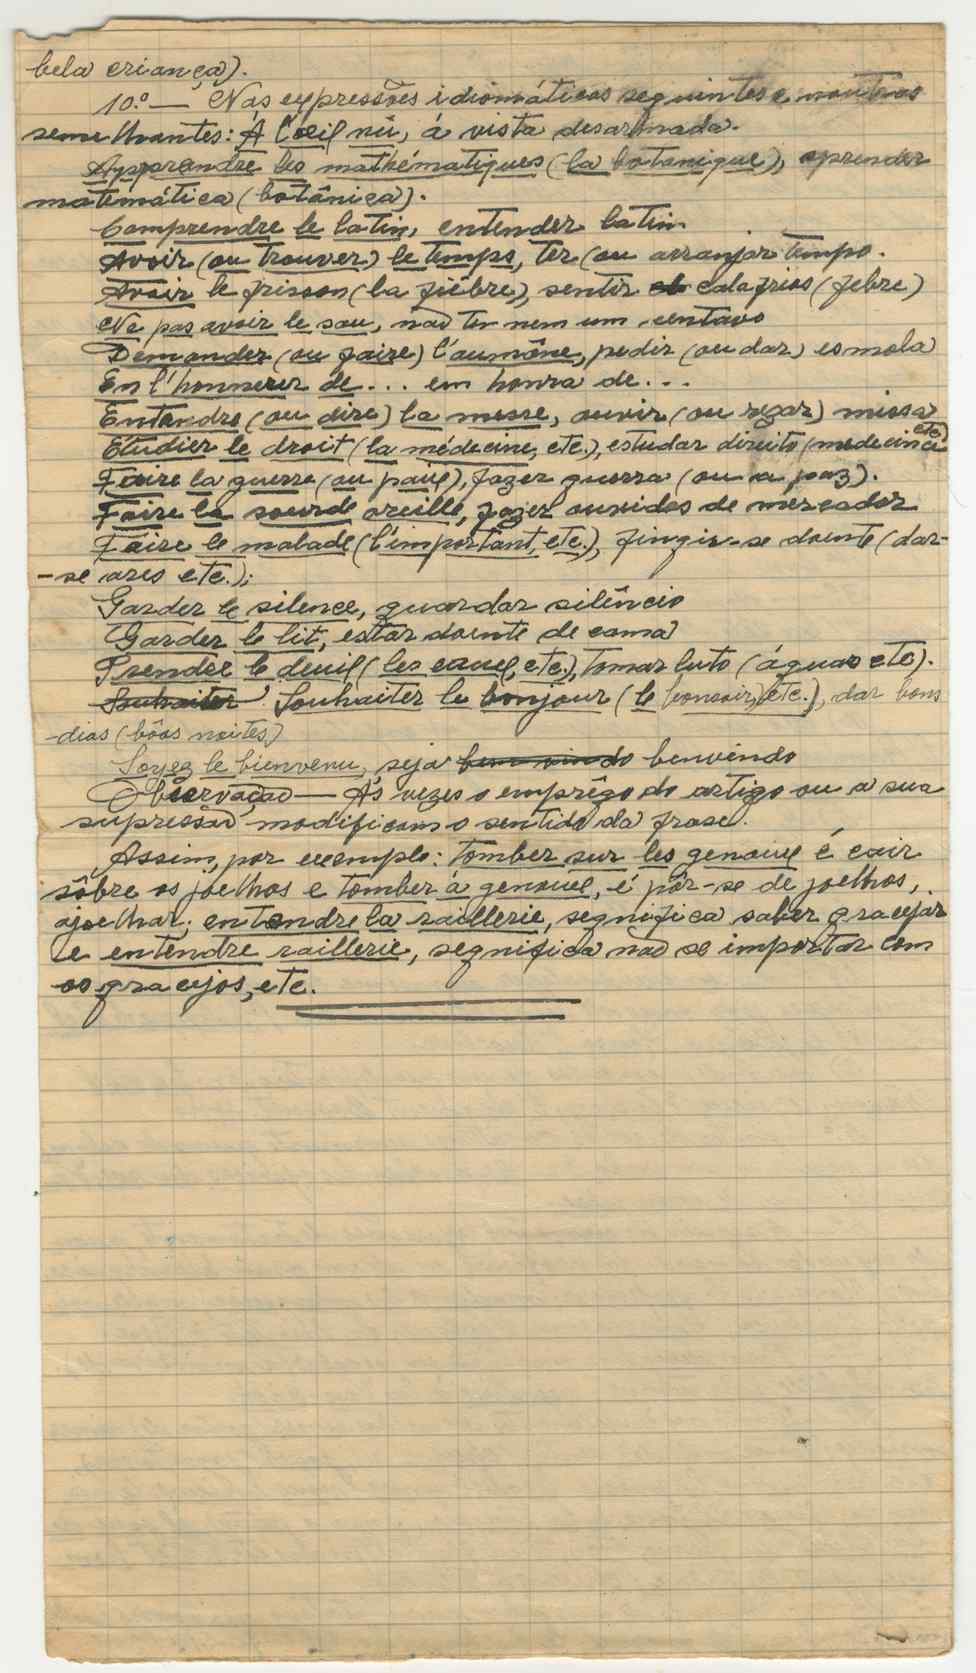 bela criança).
10.º — Nas expressões idiomáticas seguintes e noutras
semelhantes: À l'œil nû, á vista desarmada.
Apprendre les mathématiques (la botanique), aprender
matemática (botânica).
Comprendre le latin, entender latin
Avoir (ou trouver) le temps, ter (ou arranjar tempo.
Avoir le frisson (la fiêbre), sentir calafrios (febre)
Ne pas avoir le sou, naõ ter nem um centavo
Demander (ou faire) l'aumône, pedir (ou dar) esmola
En l'honneur de... em honra de...
Entendre (ou dire) la messe, ouvir (ou rezar) missa
Etudier le droit (la médecine, etc.), estudar direito (medecina etc)
Faire la guerre (ou paix), fazer guerra (ou a paz).
Faire la sourde oreille, fazer ouvidos de mercador
Faire le malade (l'important, etc.), fingir-se doente (dar-
-se ares etc.);
Garder le silence, guardar silêncio
Garder le lit, estar doente de cama
Prendre le deuil (les eaux, etc.), tomar luto (águas etc).
Souhaiter Souhaiter le bonjour (le bonsoir, etc.), dar bons
-dias (bôas noites)
Soyez le bienvenu, seja bem vindo benvindo
Observação — Ás vezes o emprêgo do artigo ou a sua
supressaõ modificam o sentido da frase.
Assim, por exemplo: tomber sur les genoux é cair
sôbre os joelhos e tomber à genoux, é pôr-se de joelhos,
ajoelhar; entendre la raillerie, segnifica saber gracejar
e entendre raillerie, segnifica naõ se importar com
os gracejos, etc.